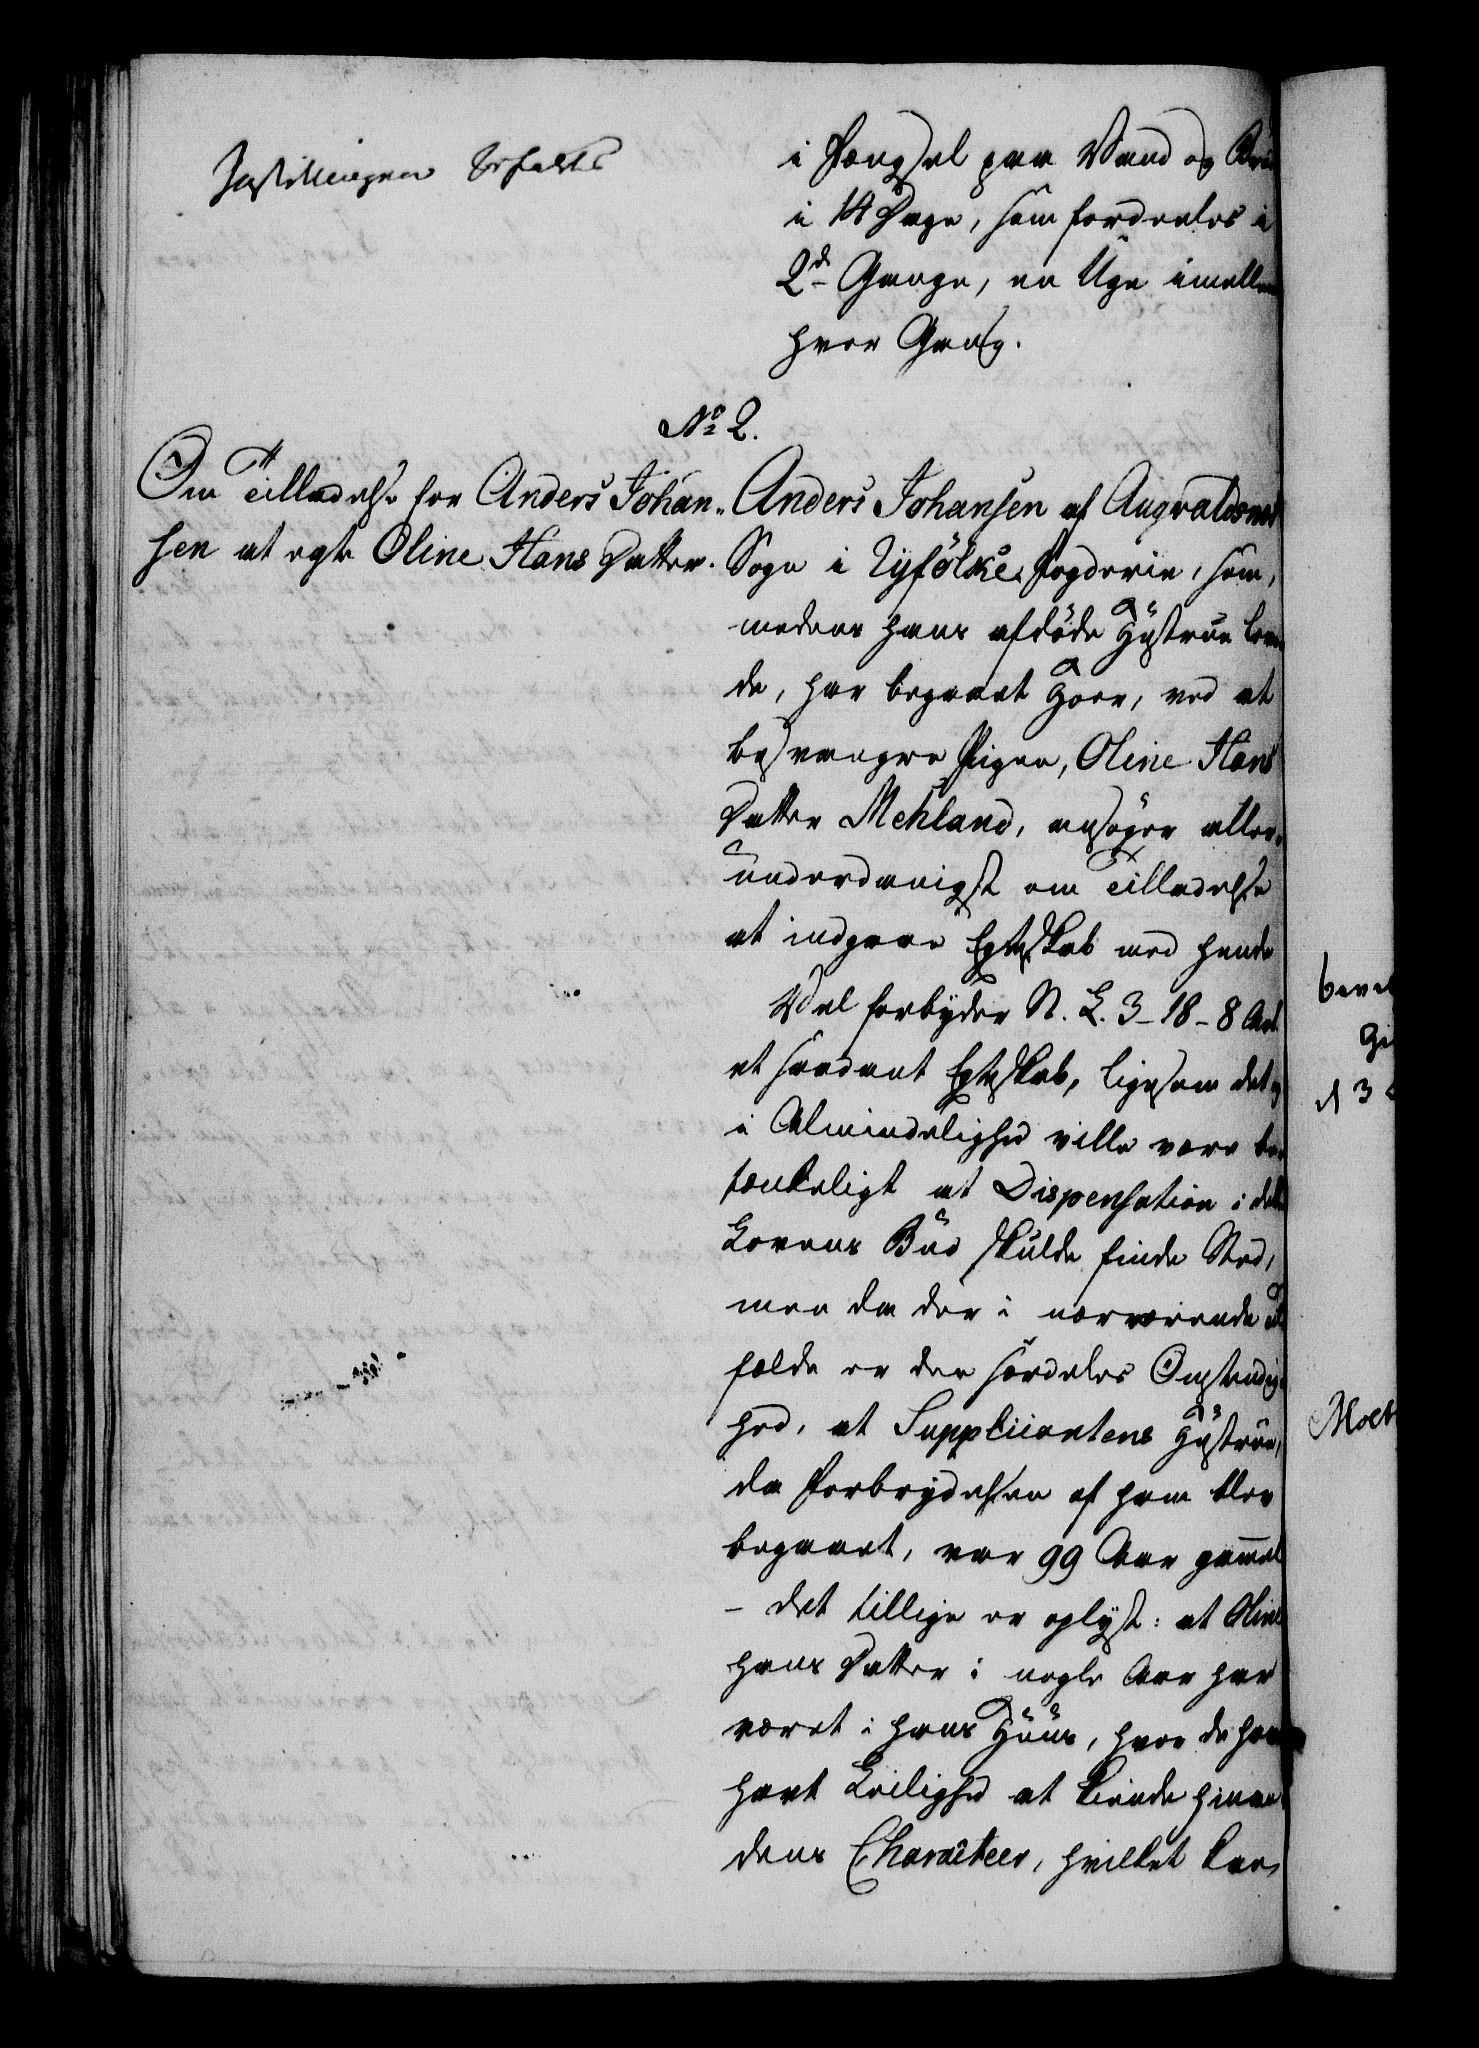 Indstillingen bifaldes
i Fængsel paa Vand og Brød
i 14 Dage, som fordeeles i
2de Gange, en Uge imellem
hver Gang.
No 2.
Om Tilladelse for Anders Johan-
sen at egte Oline Hans Datter.
Anders Johansen af Augvaldsnes
Sogn i Ryfölke Fogderie, som,
medens hans afdöde Hustrue leve-
de, har begaaet Hoer, ved at
besvangre Pigen, Oline Hans
Datter Mehland, ansöger aller-
underdanigst om Tilladelse
at indgaae Egteskab med hende
Vel forbyder N. L. 3-18-8 Art.
et saadant Egteskab, ligesom det
i Almindelighed ville være be-
tænkeligt at Dispensation i dette
Lovens Bud skulde finde Sted,
men da der i nærværende Til-
fælde er den særdeles Omstændig-
hed, at Supplicantens Hustrue,
da Forbrydelsen af ham blev
begaaet, var 99 Aar gammel
- det tillige er oplyst: at Oline
Hans Datter i nogle Aar har
været i hans Huus, hvor de have
havt Leilighed at kiende hinan-
dens Characteer, hvilket kan,